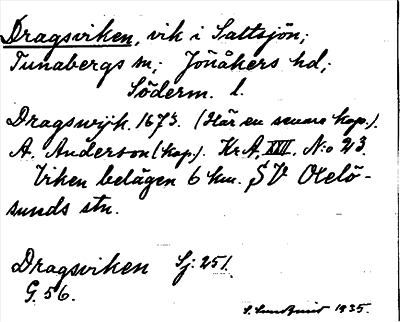 Dragsviken, vik i Saltsjön;
Tunabergs sn; Jönåkers hd;
Söderm. l.
Dragswijk. 1673. (Här en senare kop.).
A. Anderson (kop.). Kr A, XXII, N:o 23.
Viken belägen 6 km. SV Oxelö-
sunds stn.
Dragsviken Sj: 251.
G. 56.
S. 1935.